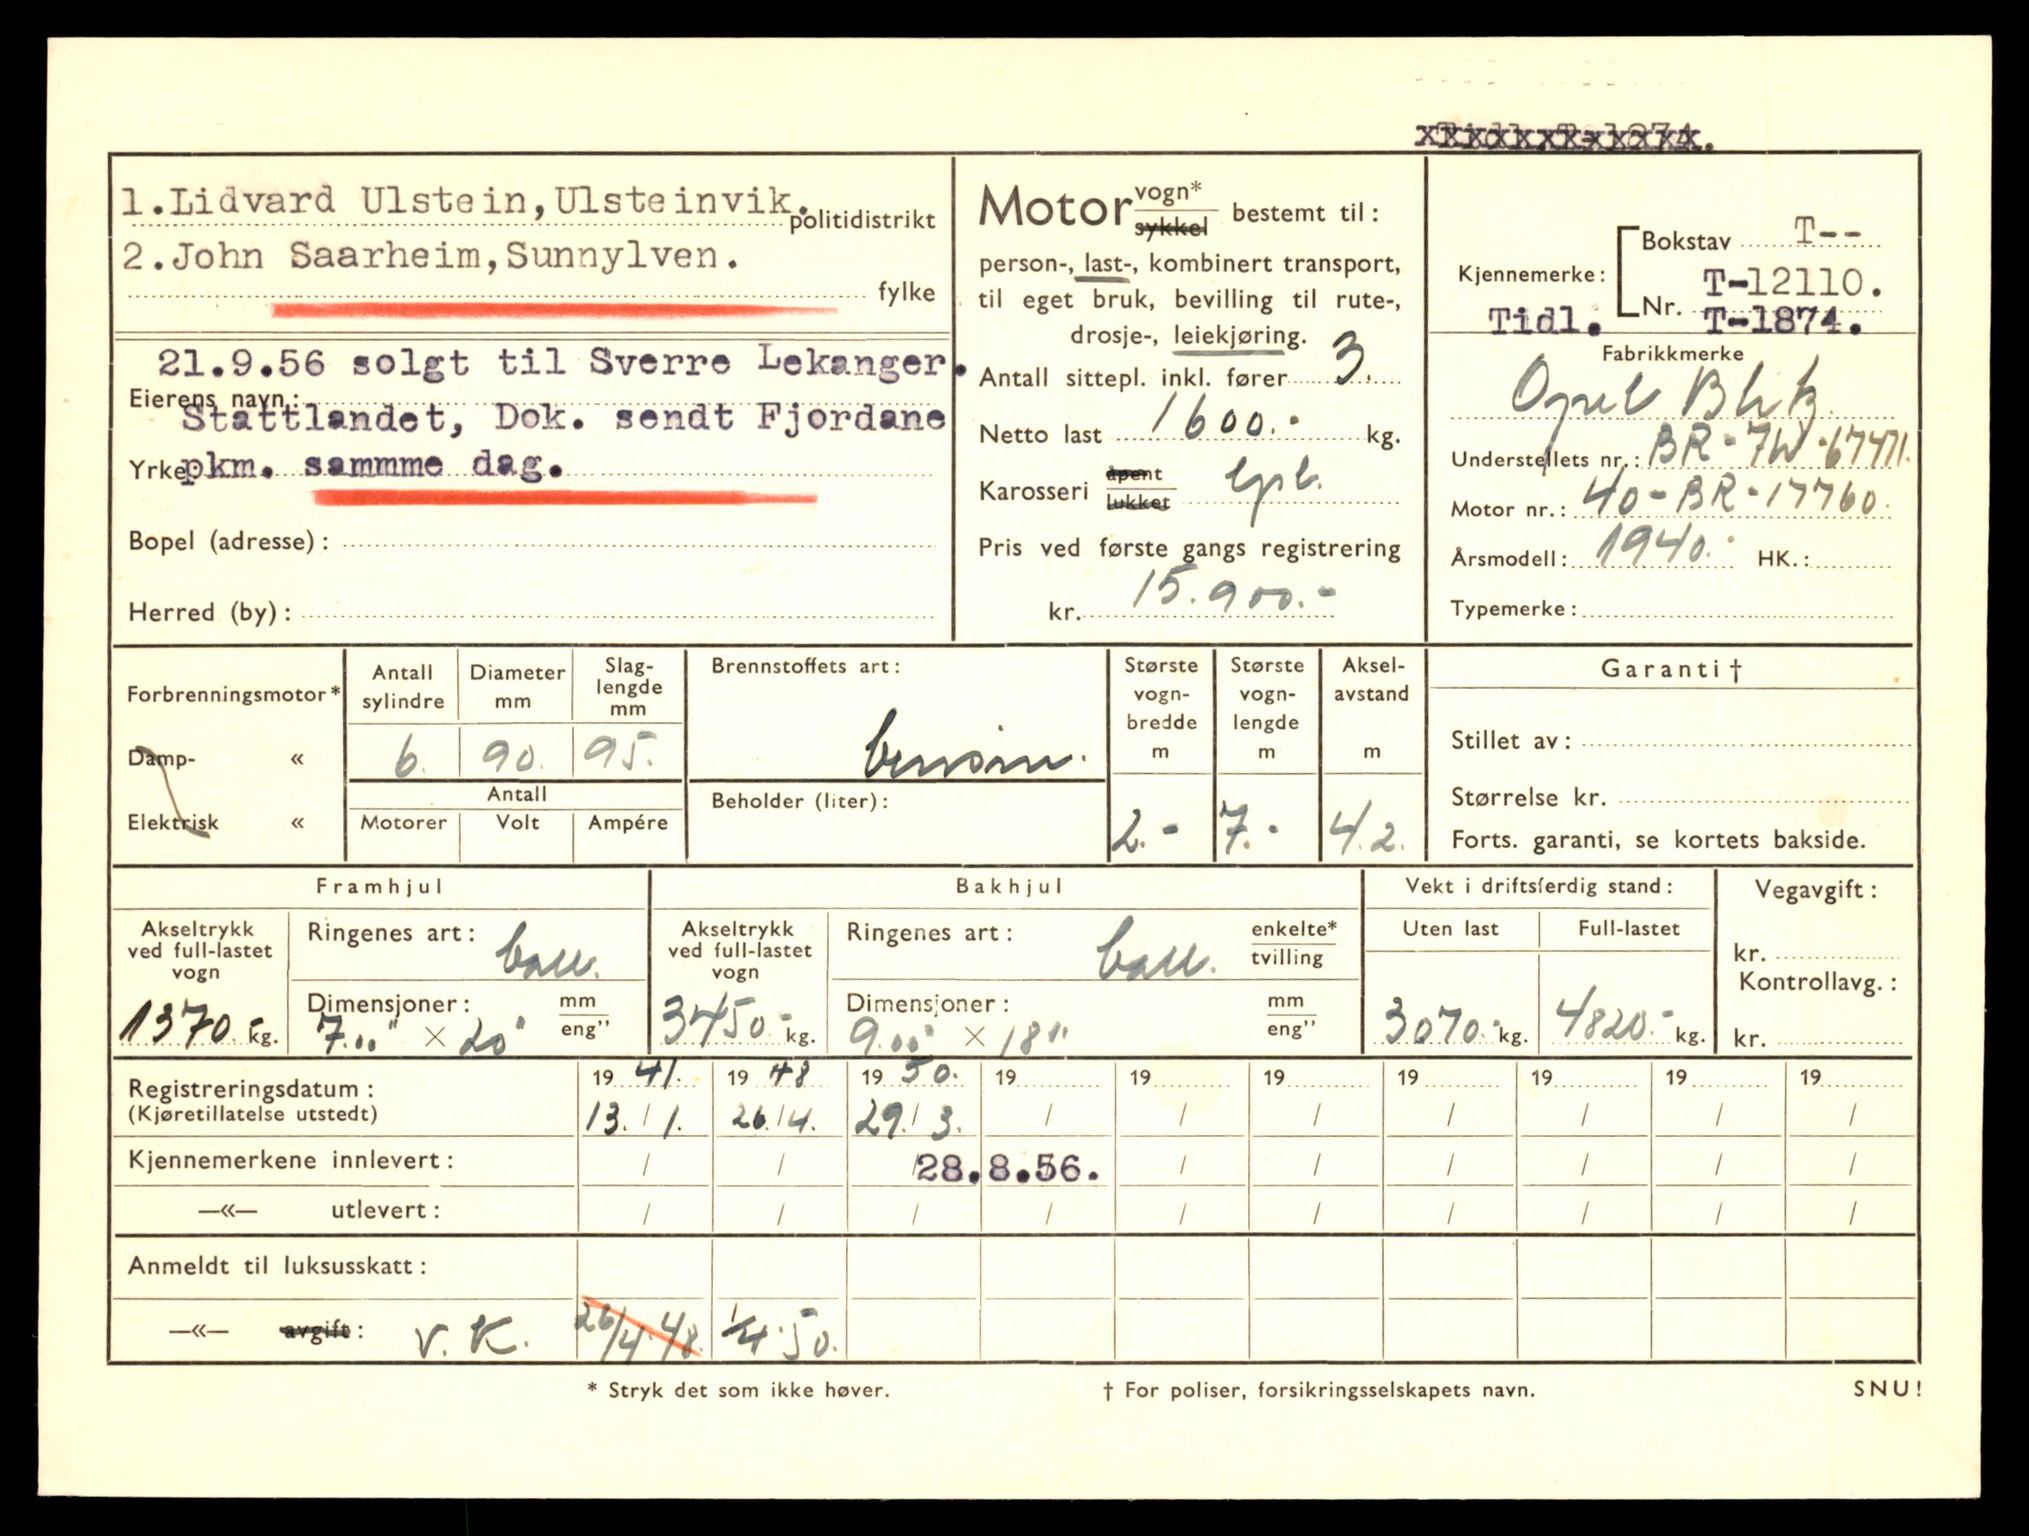 1.Lidvard Ulstein,Ulsteinvik.
politidistrikt
2.John Saarheim,Sunnylven.
fylke
21.9.56 solgt til Sverre Lekanger.
Eierens navn:
Stattlandet, Dok. sendt Fjordane
Yrke
pkm. sammme dag.
Bopel (adresse):
Herred (by):
Motor vogn* sykkel bestemt til:
person-, last-, kombinert transport,
til eget bruk, bevilling til rute-,
drosje-, leiekjøring.
Antall sittepl. inkl. fører 3.
Netto last 1600.- kg.
Karosseri åpent lukket
Pris ved første gangs registrering
kr. 15.900.-
Bokstav T--
Kjennemerke:
T-12110.
Nr.
Tidl. T-1874.
Fabrikkmerke
Opel Blitz
Understellets nr.: BR-7W-67471.
Motor nr.: 40-BR-17760.
Årsmodell: 1940. HK.:
Typemerke:
Forbrenningsmotor*
Damp- «
Elektrisk «
Antall sylindre
Diameter mm
Slag-
lengde
mm
6. 90. 95.
Antall
Motorer Volt Ampére
Brennstoffets art:
bensin.
Beholder (liter):
Største
vogn-
bredde
m
2.-
Største
vogn-
lengde
m
7.-
Aksel-
avstand
m
4.2.
Garanti †
Stillet av:
Størrelse kr.
Forts. garanti, se kortets bakside.
Framhjul
Akseltrykk
ved full-lastet
vogn
1370.- kg.
Ringenes art: ball.
Dimensjoner: mm
7.00" × 20" eng''
Bakhjul
Akseltrykk
ved full-lastet
vogn
3450.- kg.
Ringenes art: ball. enkelte*
tvilling
Dimensjoner: mm
9.00" × 18" eng''
Vekt i driftsferdig stand:
Uten last Full-lastet
3070.- kg. 4820.- kg.
Vegavgift:
kr.
Kontrollavg.:
kr.
Registreringsdatum: 19 41. 19 48 19 50. 19 19 19 19 19 19 19
(Kjøretillatelse utstedt) 13. / 1. 26. / 4. 29. / 3. / / / / / / /
Kjennemerkene innlevert: / / / 28.8.56. / / / / / /
—«— utlevert: / / / / / / / / / /
Anmeldt til luksusskatt:
—«— avgift: V. K. 26/4.48. 1/4.50.
* Stryk det som ikke høver. † For poliser, forsikringsselskapets navn. SNU!